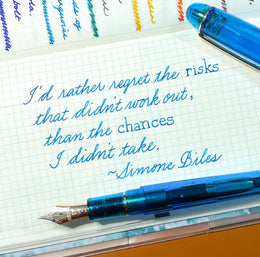 I'd rather regret the risks
that didn't work out,
than the chances
I didn't take.
~Simone Biles